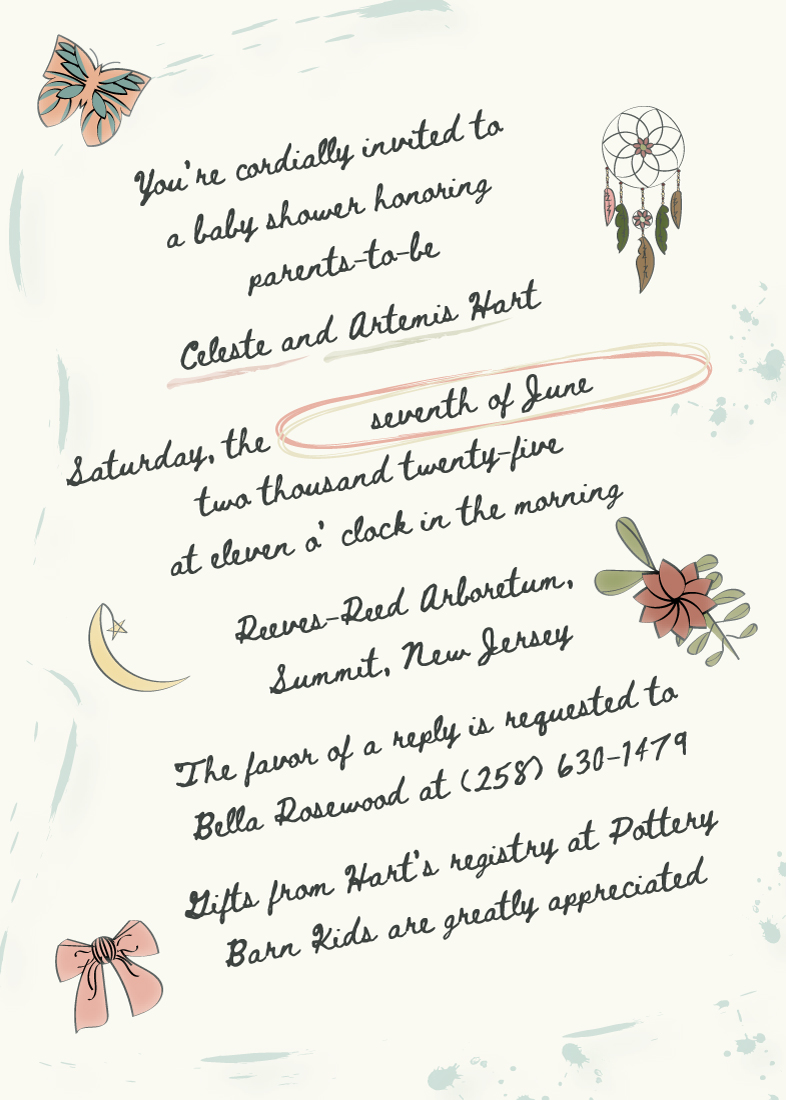 You're cordially invited to
a baby shower honoring
parents-to-be
Celeste and Artemis Hart
Saturday, the seventh of June
two thousand twenty-five
at eleven o' clock in the morning
Reeves-Reed Arboretum,
Summit, New Jersey
The favor of a reply is requested to
Bella Rosewood at (258) 630-1479
Gifts from Hart's registry at Pottery
Barn Kids are greatly appreciated